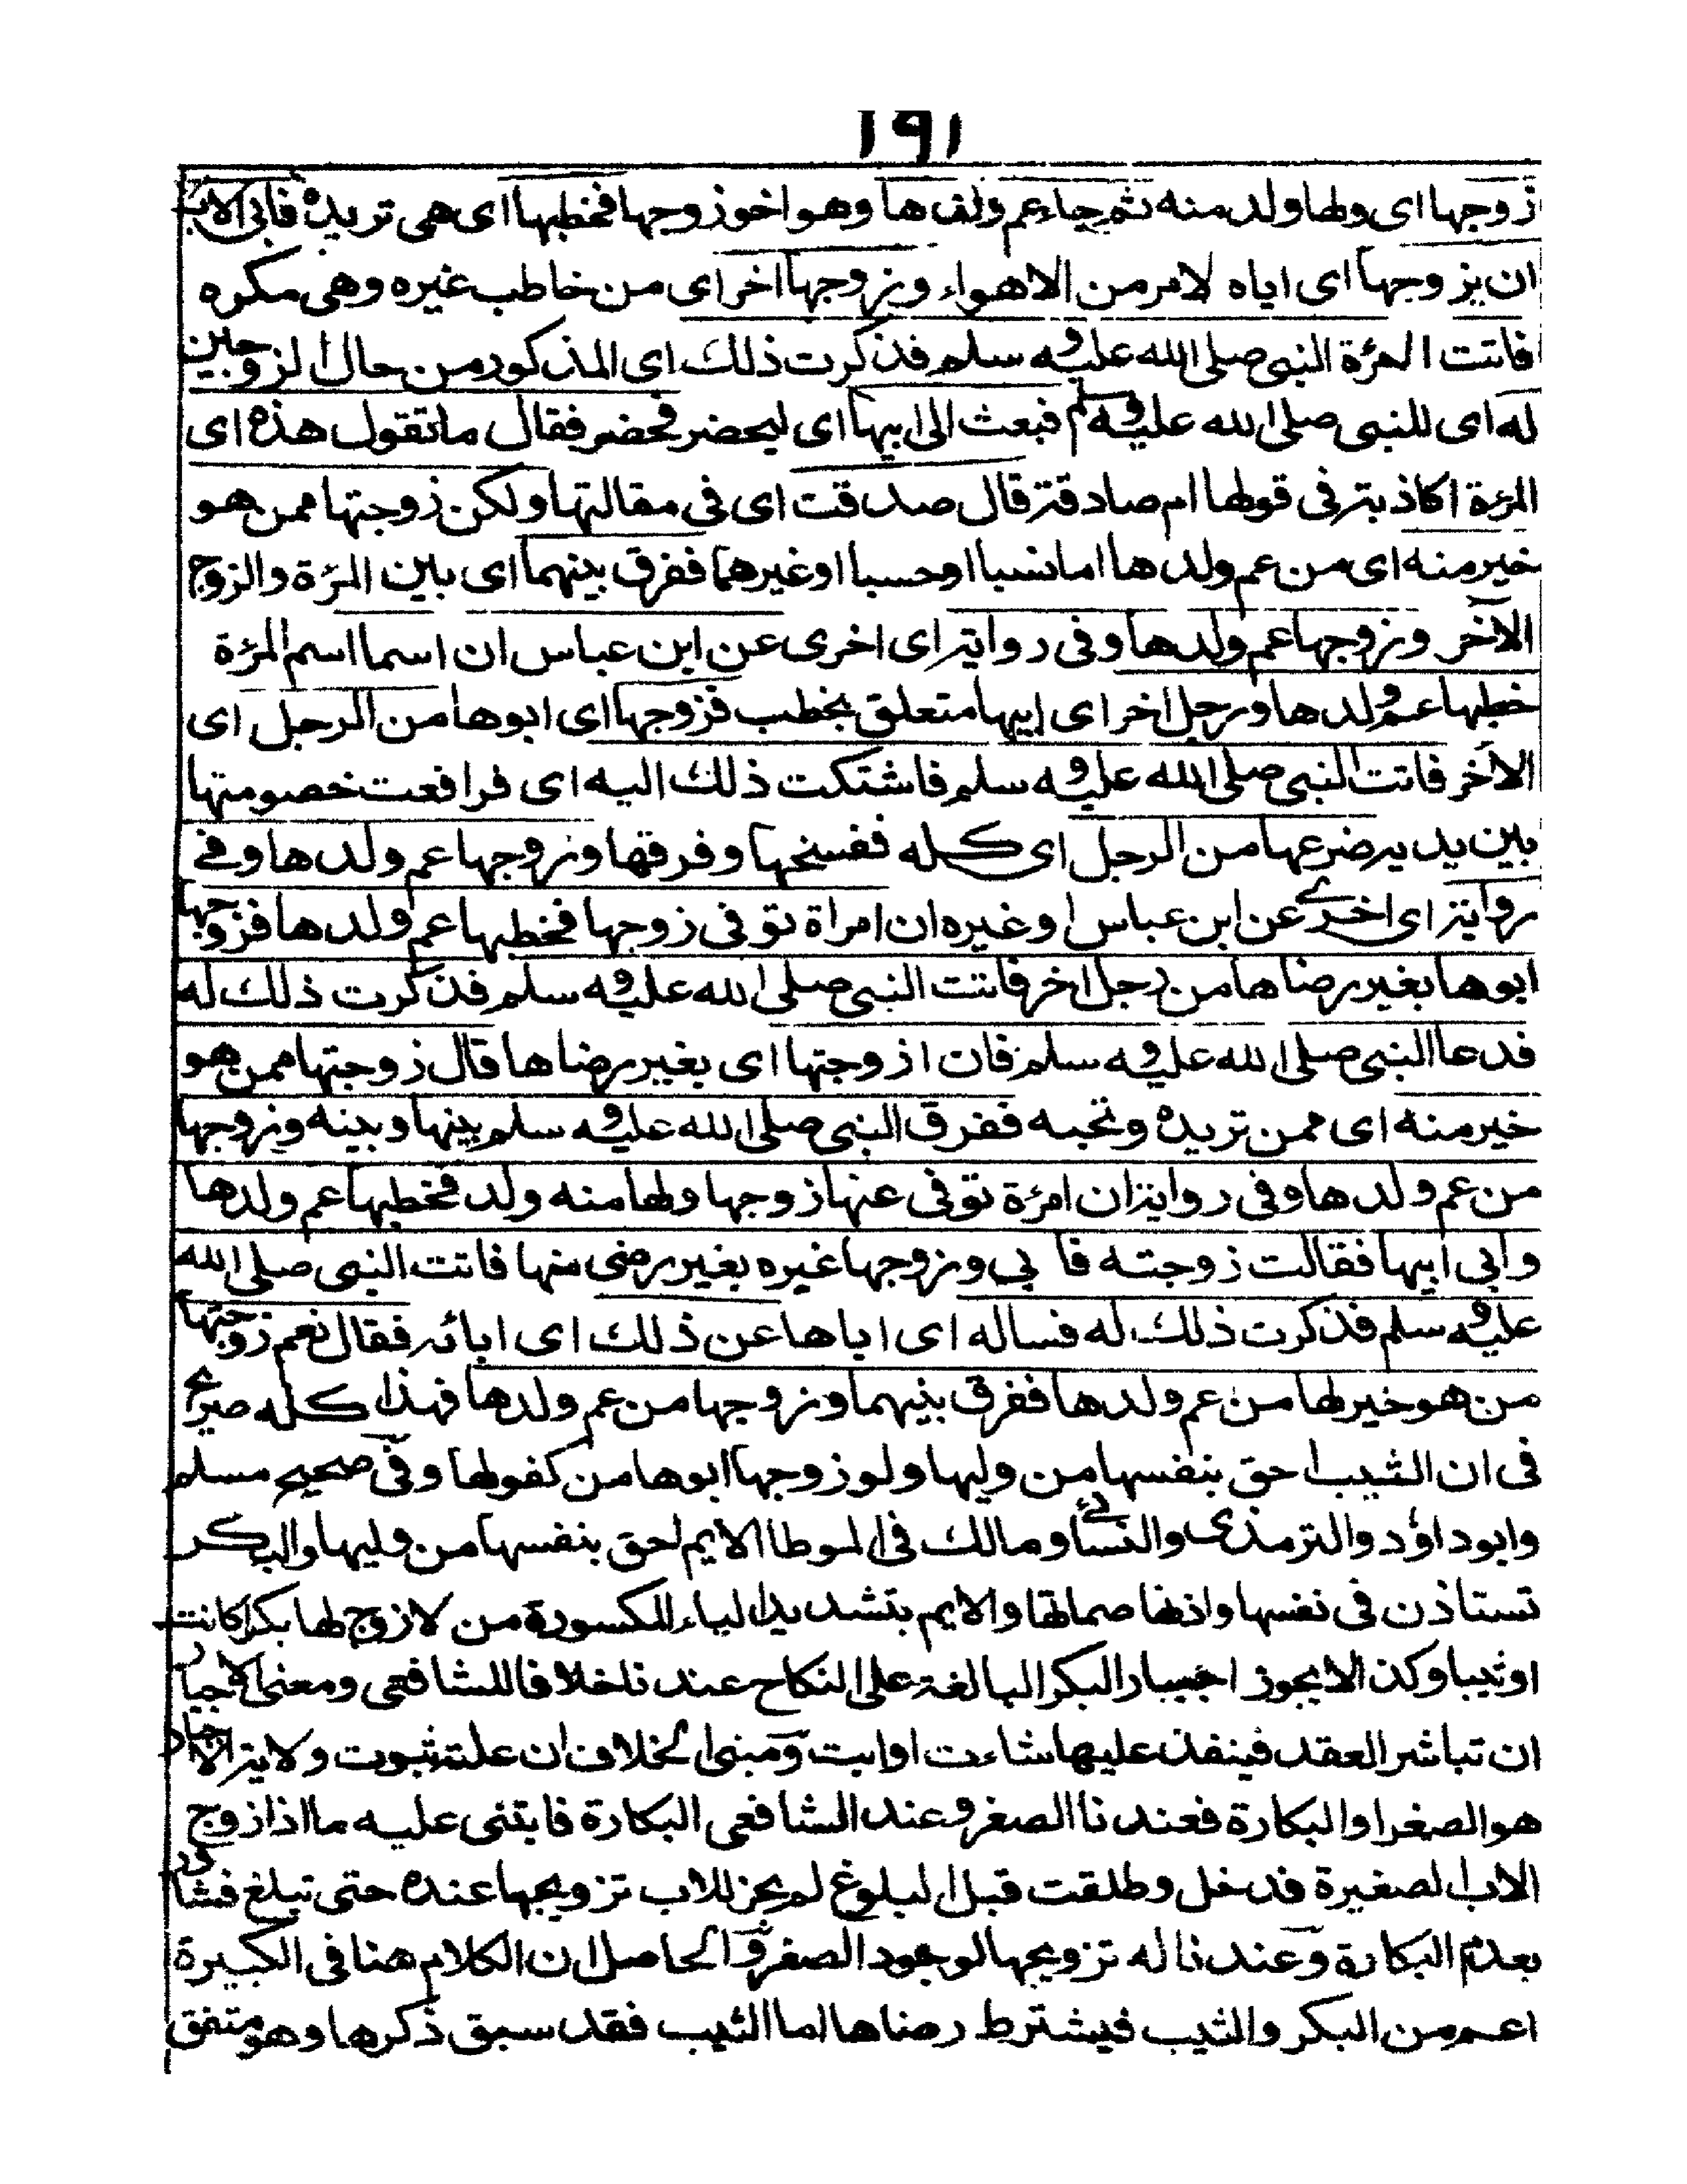 ١٩١
زوجها اى ولها ولد منه ثم جاء عم ولدها وهو اخو زوجها فخطبها اى هى تريده فابى الاب
ان يزوجها اى اياه لامر من الاهواء وزوجها اخر اى من خاطب غيره وهى مكره
فاتت المرءة النبى صلى الله عليه وسلم فذكرت ذلك اى المذكور من حال الزوجين
له اى للنبى صلى الله عليه وسلم فبعث الى ابيها اى ليحضر فحضر فقال ما تقول هذه اى
المرءة اكاذبة فى قولها ام صادقة قال صدقت اى فى مقالتها ولكن زوجتها ممن هو
خير منه اى من عم ولدها اما نسبا اوحسبا اوغيرهما ففرق بينهما اى بين المرءة والزوج
الآخر وزوجها عم ولدها وفى رواية اى اخرى عن ابن عباس ان اسما اسم المرءة
خطبها عم ولدها ورجل اخر اى ابيها متعلق بخطب فزوجها اى ابوها من الرجل اى
الآخر فاتت النبى صلى الله عليه وسلم فاشتكت ذلك اليه اى فرافعت خصومتها
بين يديه ضرعها من الرجل اى كله ففسخها وفرقها وزوجها عم ولدها وفے
رواية اى اخرے عن ابن عباس اوغيره ان امراة توفى زوجها فخطبها عم ولدها فزوجها
ابوها بغير رضاها من رجل اخر فاتت النبى صلى الله عليه وسلم فذكرت ذلك له
فدعا النبى صلى الله عليه وسلم فان ازوجتها اى بغير رضاها قال زوجتها ممن هو
خير منه اى ممن تريده وتحبه ففرق النبى صلى الله عليه وسلم بينها وبينه وزوجها
من عم ولدها وفى رواية ان امرءة توفى عنها زوجها ولها منه ولد فخطبها عم ولدها
وابى ابيها فقالت زوجته فابي وزوجها غيره بغير رضى منها فاتت النبى صلى الله
عليه وسلم فذكرت ذلك له فساله اى اباها عن ذلك اى ابائه فقال نعم زوجتها
من هو خير لها من عم ولدها ففرق بينهما وزوجها من عم ولدها فهذا كله صريح
فى ان الثيب احق بنفسها من وليها ولو زوجها ابوها من كفولها وفى صحيح مسلم
وابوداؤد والترمذى والنسائے ومالك فى الموطا الايم احق بنفسها من وليها والبكر
تستاذن فى نفسها واذنها صماتها والايم بتشديد الياء المكسورة من لازوج لها بكرا كانت
اوثيبا وكذا لايجوز اجبار البكر البالغة على النكاح عندنا خلافا للشافعى ومعنى الاجبار
ان تباشر العقد فينفذ عليها شاءت اوابت ومبنى الخلاف ان علة ثبوت ولاية الاجبار
هو الصغر او البكارة فعندنا الصغر وعند الشافعى البكارة فابتنى عليه ما اذا زوج
الاب الصغيرة فدخل وطلقت قبل البلوغ لم يجز للاب تزويجها عنده حتى تبلغ فتشاور
بعدم البكارة وعندنا له تزويجها لوجود الصغر والحاصل ان الكلام هنا فى الكبيرة
اعم من البكر والثيب فيشترط رضاها اما الثيب فقد سبق ذكرها وهو متفق